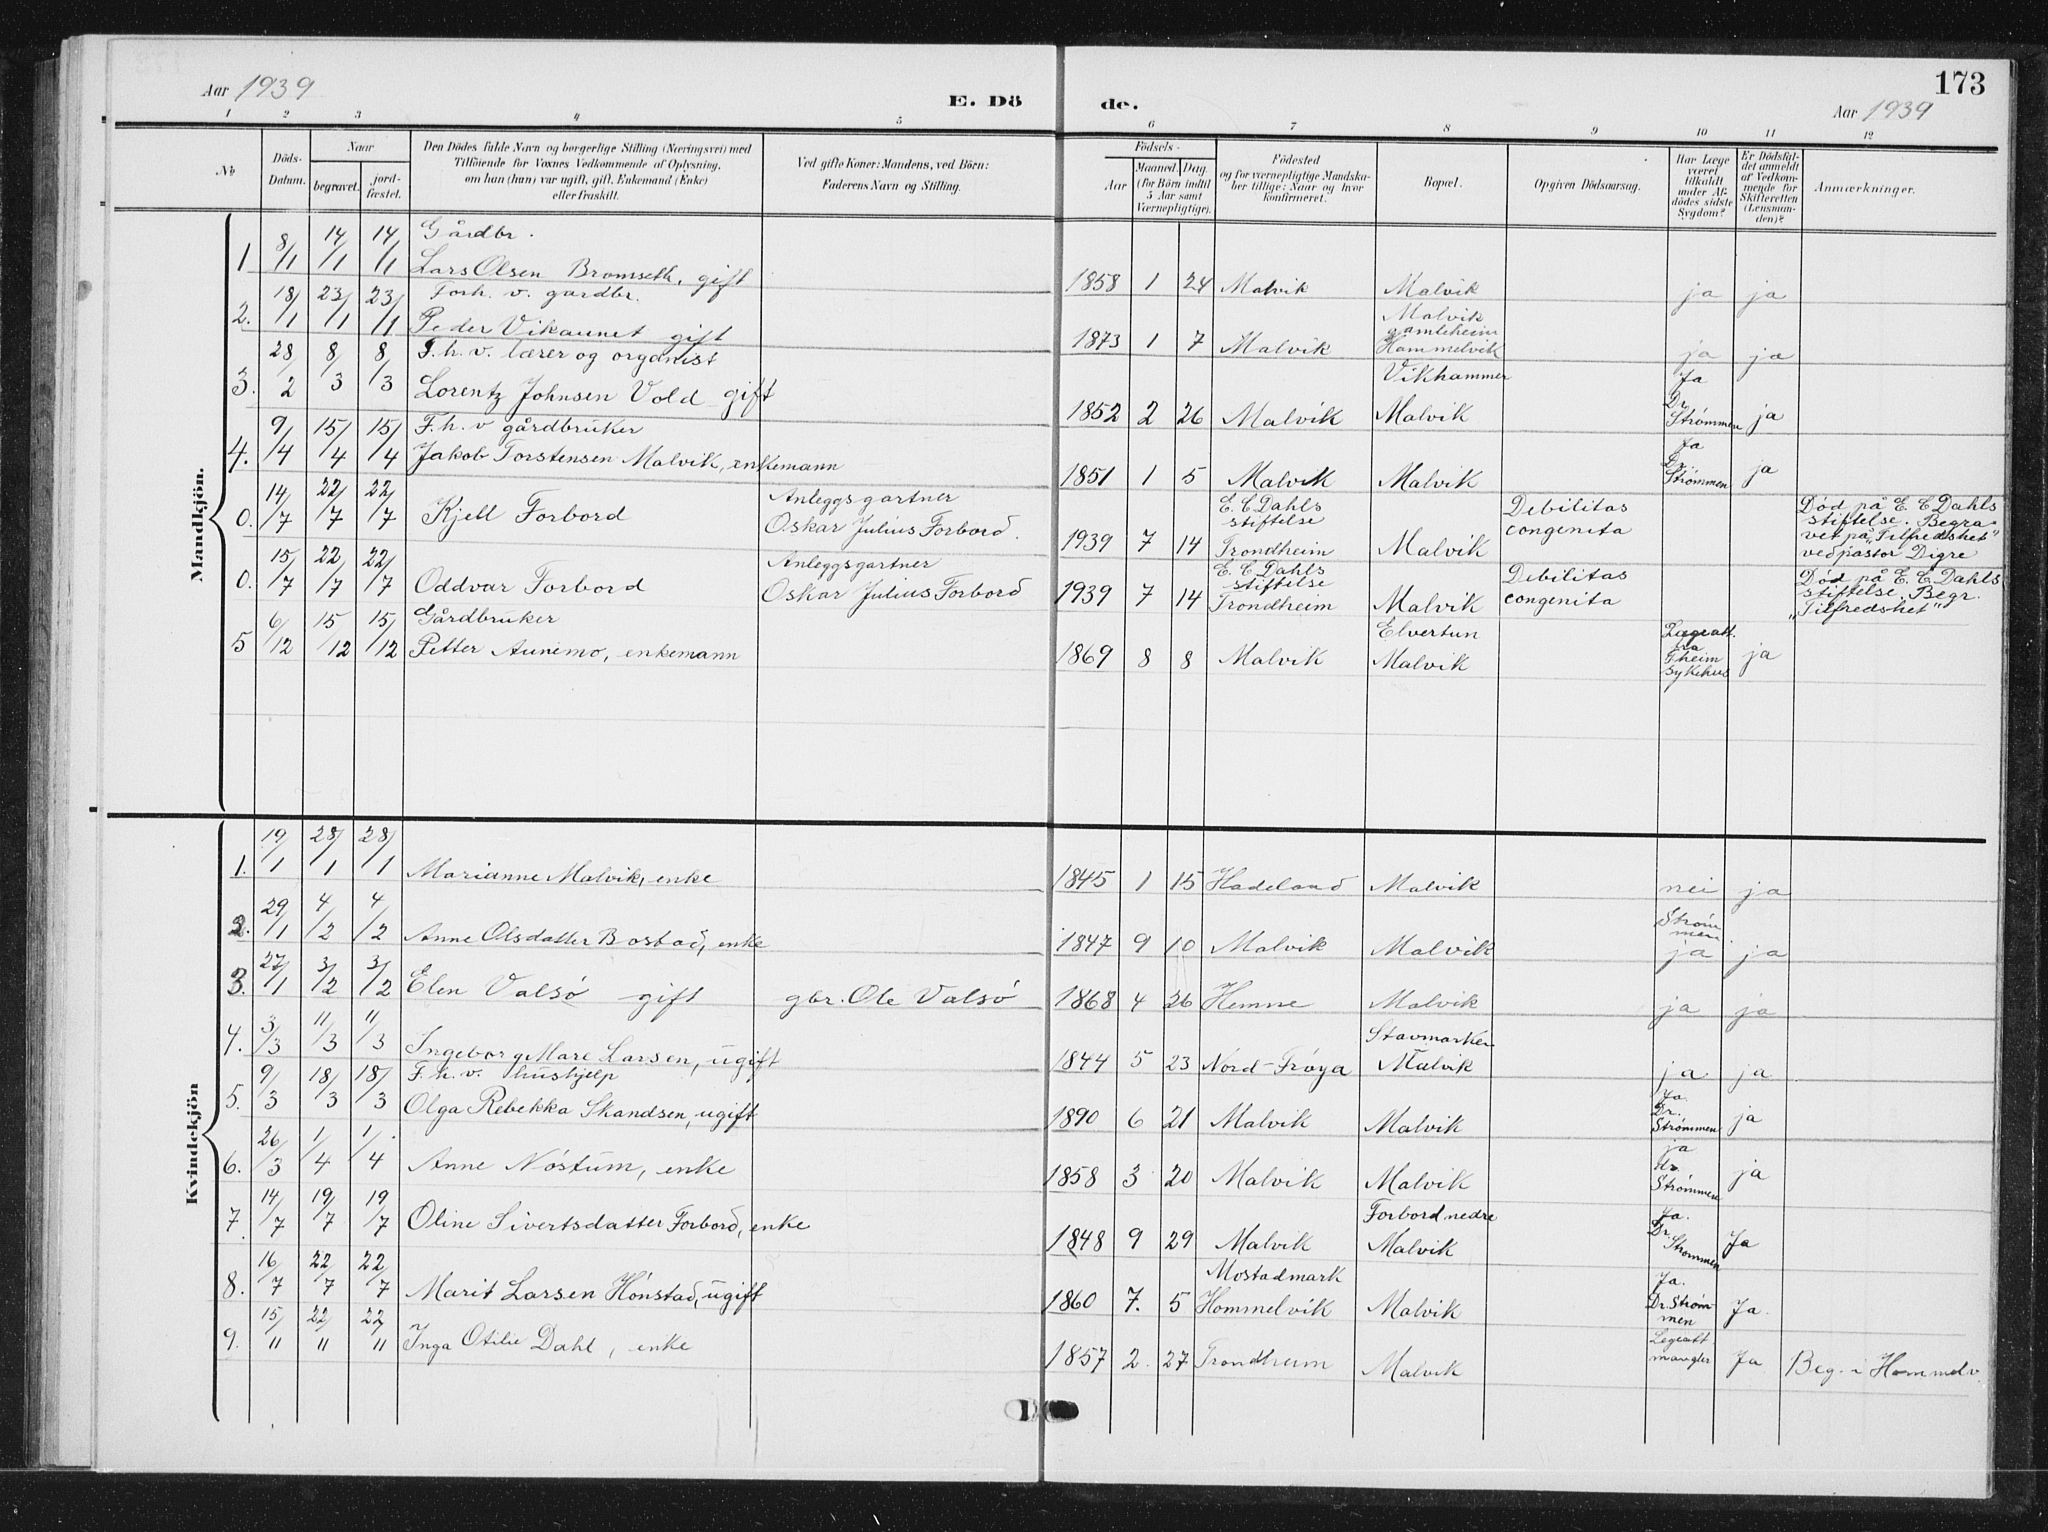 Aar 1939
E. Dö
de.
173
Aar 1939
1 2 3 4 5 6 7 8 9 10 11 12
No
Döds-
Datum.
Naar
begravet.
jord-
fæstet.
Den Dödes fulde Navn og borgerlige Stilling (Næringsvei) med
Tilföiende for Voxnes Vedkommende af Oplysning,
om han (hun) var ugift, gift, Enkemand (Enke)
eller fraskilt.
Ved gifte Koner: Mandens, ved Börn:
Faderens Navn og Stilling.
Födsels-
Aar
Maaned. Dag.
(for Börn indtil
5 Aar samt
Værnepligtige).
Födested
og for værnepligtige Mandska-
ber tillige: Naar og hvor
konfirmeret.
Bopæl.
Opgiven Dödsaarsag.
Har Læge
været
tilkaldt
under Af-
dödes sidste
Sygdom?
Er Dödsfal-
det anmeldt
af Vedkom-
mende for
Skifteretten
(Lensman-
den)?
Anmærkninger.
Mandkjön.
Gårdbr.
1 8/1 14/1 14/1 Lars Olsen Bromseth, gift 1858 1 24 Malvik Malvik ja ja
Forh. v. gardbr. Malvik
gamleheim
2. 18/1 23/1 23/1 Peder Vikaunet gift 1873 1 7 Malvik Hommelvik ja ja
F.h.v. lærer og organist Vikhammer Ja
3. 28/2 8/3 8/3 Lorentz Johnsen Vold gift 1852 2 26 Malvik Malvik Dr. Strømmen ja
F.h.v gårdbruker Ja
4. 9/4 15/4 15/4 Jakob Torstensen Malvik, enkemann 1851 1 5 Malvik Malvik Dr. Strømmen ja
Anleggsgartner E. C Dahls Debilitas Død på E. C Dahls
stiftelse stiftelse. Begra-
0. 14/7 22/7 22/7 Kjell Forbord Oskar Julius Forbord. 1939 7 14 Trondheim Malvik congenita vet på „Tilfredshet"
ved pastor Digre
Anleggsgartner E. C. Dahls Debilitas Død på E. C. Dahls
stiftelse stiftelse. Begr.
0. 15/7 22/7 22/7 Oddvar Forbord Oskar Julius Forbord 1939 7 14 Trondheim Malvik congenita „Tilfredshet"
Gårdbruker Elvertun Lægeatt.
fra
5 6/12 15/12 15/12 Petter Aunemo, enkemann 1869 8 8 Malvik Malvik Theim ja
sykehus
Kvindekjön
1. 19/1 28/1 28/1 Marianne Malvik, enke 1845 1 15 Hadeland Malvik nei ja
Strøm
men
2. 29/1 4/2 4/2 Anne Olsdatter Bostad, enke 1847 9 10 Malvik Malvik ja ja
3. 27/1 3/2 3/2 Elen Valsø gift gbr. Ole Valsø 1868 4 26 Hemne Malvik ja ja
Stavmarken
4. 3/3 11/3 11/3 Ingeborg Mare Larsen, ugift 1844 5 23 Nord-Frøya Malvik ja ja
F.h.v. hushjelp Ja.
5. 9/3 18/3 18/3 Olga Rebekka Skandsen, ugift 1890 6 21 Malvik Malvik Dr. Strømmen ja
ja
6. 26/3 1/4 1/4 Anne Nøstum, enke 1858 3 20 Malvik Malvik dr. Strømmen ja
Forbord nedre Ja.
7. 14/7 19/7 19/7 Oline Sivertsdatter Forbord, enke 1848 9 29 Malvik Malvik Dr. Strømmen Ja
Mostadmark Ja.
8. 16/7 22/7 22/7 Marit Larsen Hønstad, ugift 1860 7. 5 Hommelvik Malvik Dr. Strøm Ja.
men
9. 15/" 22/" 22/" Inga Otilie Dahl, enke 1857 2. 27 Trondheim Malvik Legeatt mangler Ja Beg. i Hommelv.